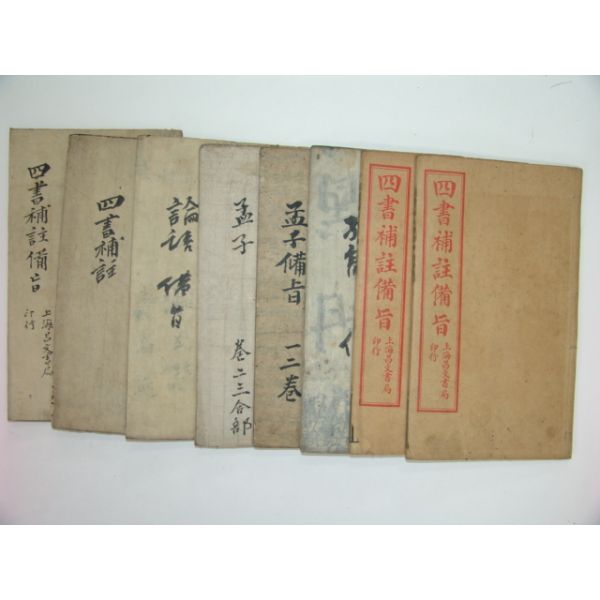 四書補註備旨
上海昌文書局
印行
四書補註
論語備旨
孟子
卷二三合部
孟子備旨
一二卷
四書補註備旨
上海昌文書局
印行
四書補註備旨
上海昌文書局
印行